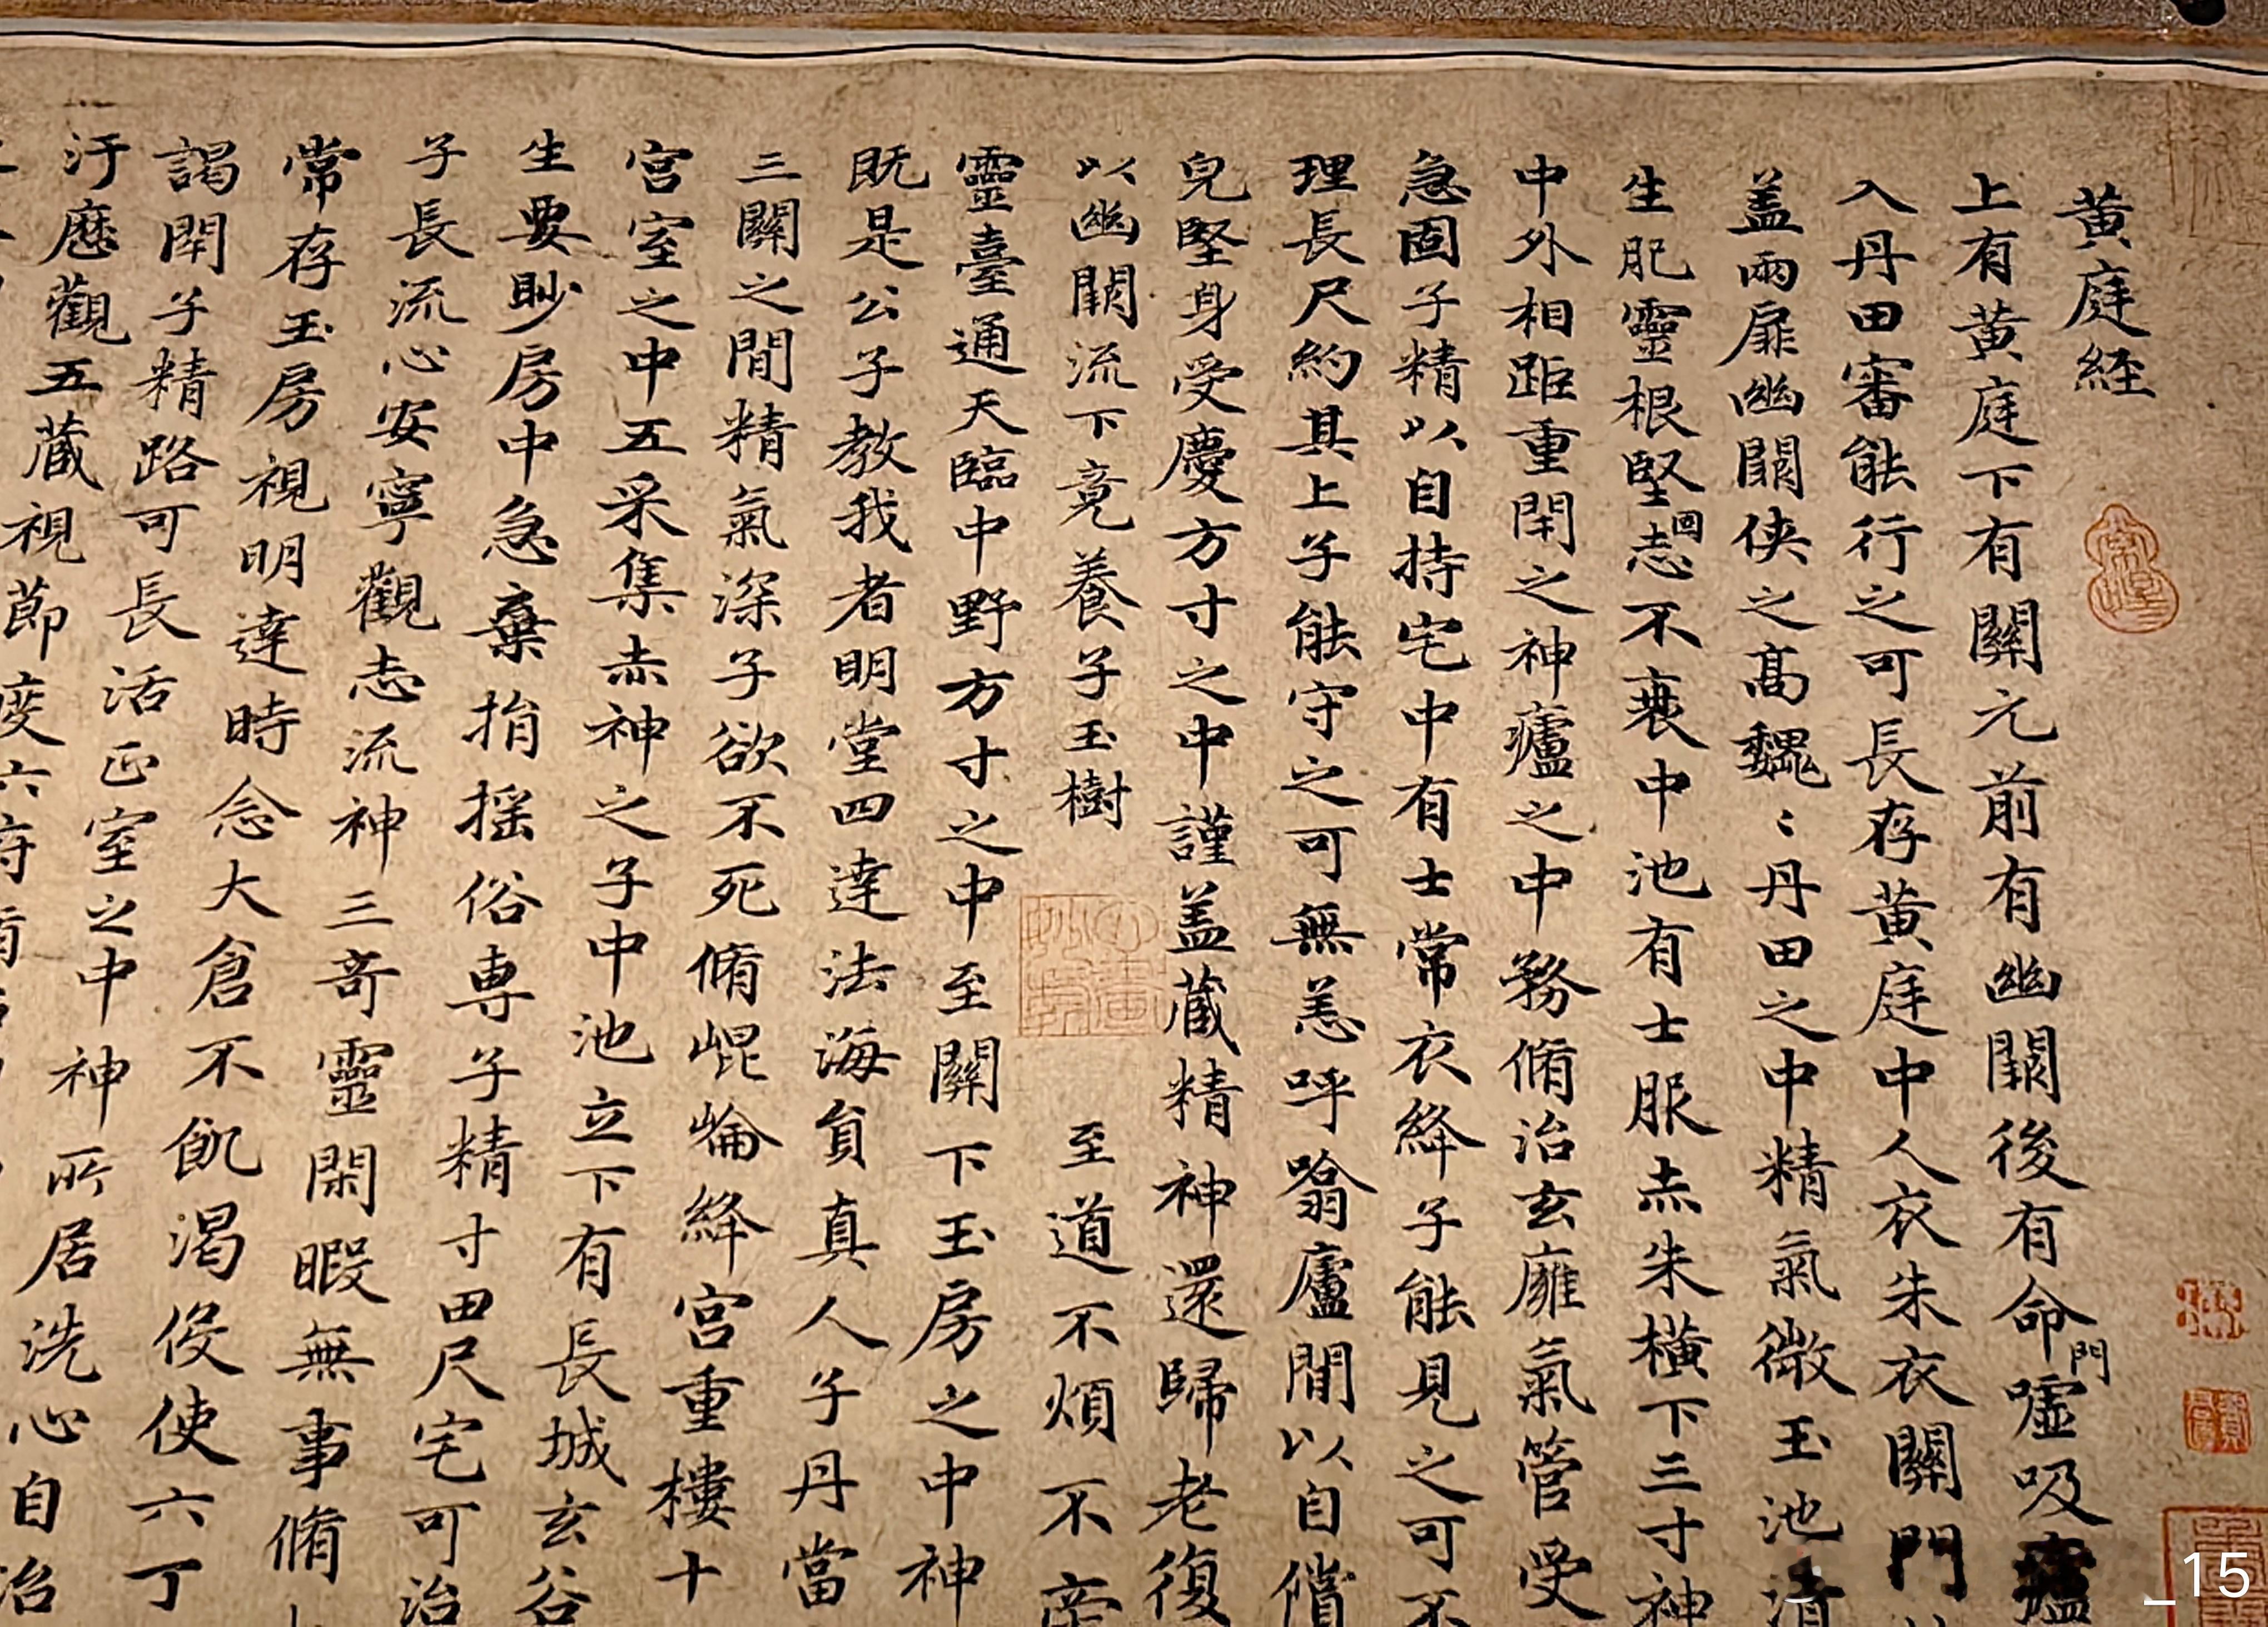 黄庭経
上有黄庭下有關元前有幽闕後有命門嘘吸廬
入丹田審能行之可長存黄庭中人衣朱衣關門
盖兩扉幽闕侠之髙魏〻丹田之中精氣微玉池清
生肥靈根堅志回不衰中池有士服赤朱横下三寸神
中外相距重閇之神廬之中務脩治玄廱氣管受
急固子精以自持宅中有士常衣絳子能見之可不
理長尺約其上子能守之可無恙呼噏廬間以自償
皃堅身受慶方寸之中謹盖蔵精神還歸老復
以幽闕流下竟養子玉樹至道不煩不
靈臺通天臨中野方寸之中至關下玉房之中神
既是公子教我者明堂四達法海負真人子丹當
三關之間精氣深子欲不死脩崐崘絳宫重樓十
宫室之中五采集赤神之子中池立下有長城玄谷
生要眇房中急棄捐摇俗専子精寸田尺宅可治
子長流心安寧觀志流神三奇靈閑暇無事脩
常存玉房視明達時念大倉不飢渴侵使六丁
謁閇子精路可長活正室之中神所居洗心自治
汙歷觀五蔵視節度六府